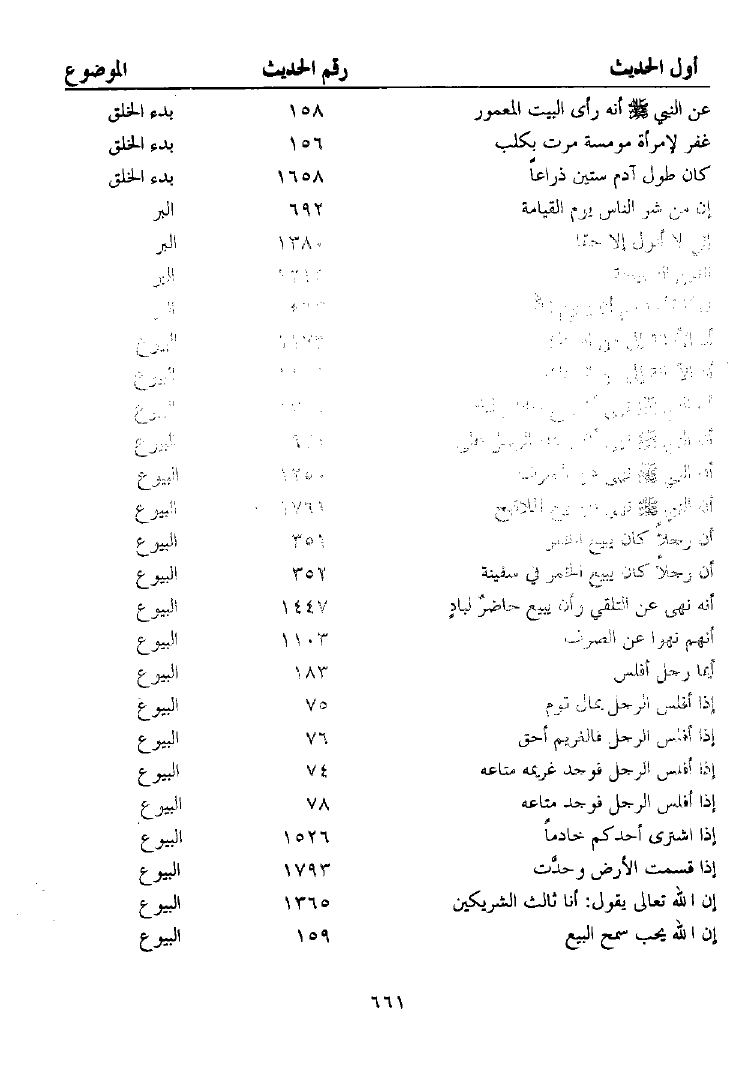 أول الحديث رقم الحديث الموضوع
عن النبي ﷺ أنه رأى البيت المعمور ١٥٨ بدء الخلق
غفر لإمرأة مومسة مرت بكلب ١٥٦ بدء الخلق
كان طول آدم ستين ذراعاً ١٦٥٨ بدء الخلق
إن من شر الناس يوم القيامة ٦٩٢ البر
إني لا أقول إلا حقا ١٣٨٠ البر
البر
البيوع
البيوع
النبي ﷺ البيوع
أن النبي ﷺ الرجل على البيوع
أن النبي ﷺ نهى عن الصرف ١٢٥٠ البيوع
أن النبي ﷺ نهى عن بيع الملاقيح ١٧٦١ البيوع
أن رجلاً كان يبيع الخمر ٣٥١ البيوع
أن رجلاً كان يبيع الخمر في سفينة ٣٥٢ البيوع
أنه نهى عن التلقي وأن يبيع حاضرٌ لبادٍ ١٤٤٧ البيوع
أنهم نهوا عن الصرف ١١٠٣ البيوع
أيما رجل أفلس ١٨٣ البيوع
إذا أفلس الرجل بمال قوم ٧٥ البيوع
إذا أفلس الرجل فالغريم أحق ٧٦ البيوع
إذا أفلس الرجل فوجد غريمه متاعه ٧٤ البيوع
إذا أفلس الرجل فوجد متاعه ٧٨ البيوع
إذا اشترى أحدكم خادماً ١٥٢٦ البيوع
إذا قسمت الأرض وحدَّت ١٧٩٣ البيوع
إن الله تعالى يقول: أنا ثالث الشريكين ١٣٦٥ البيوع
إن الله يحب سمح البيع ١٥٩ البيوع
٦٦١